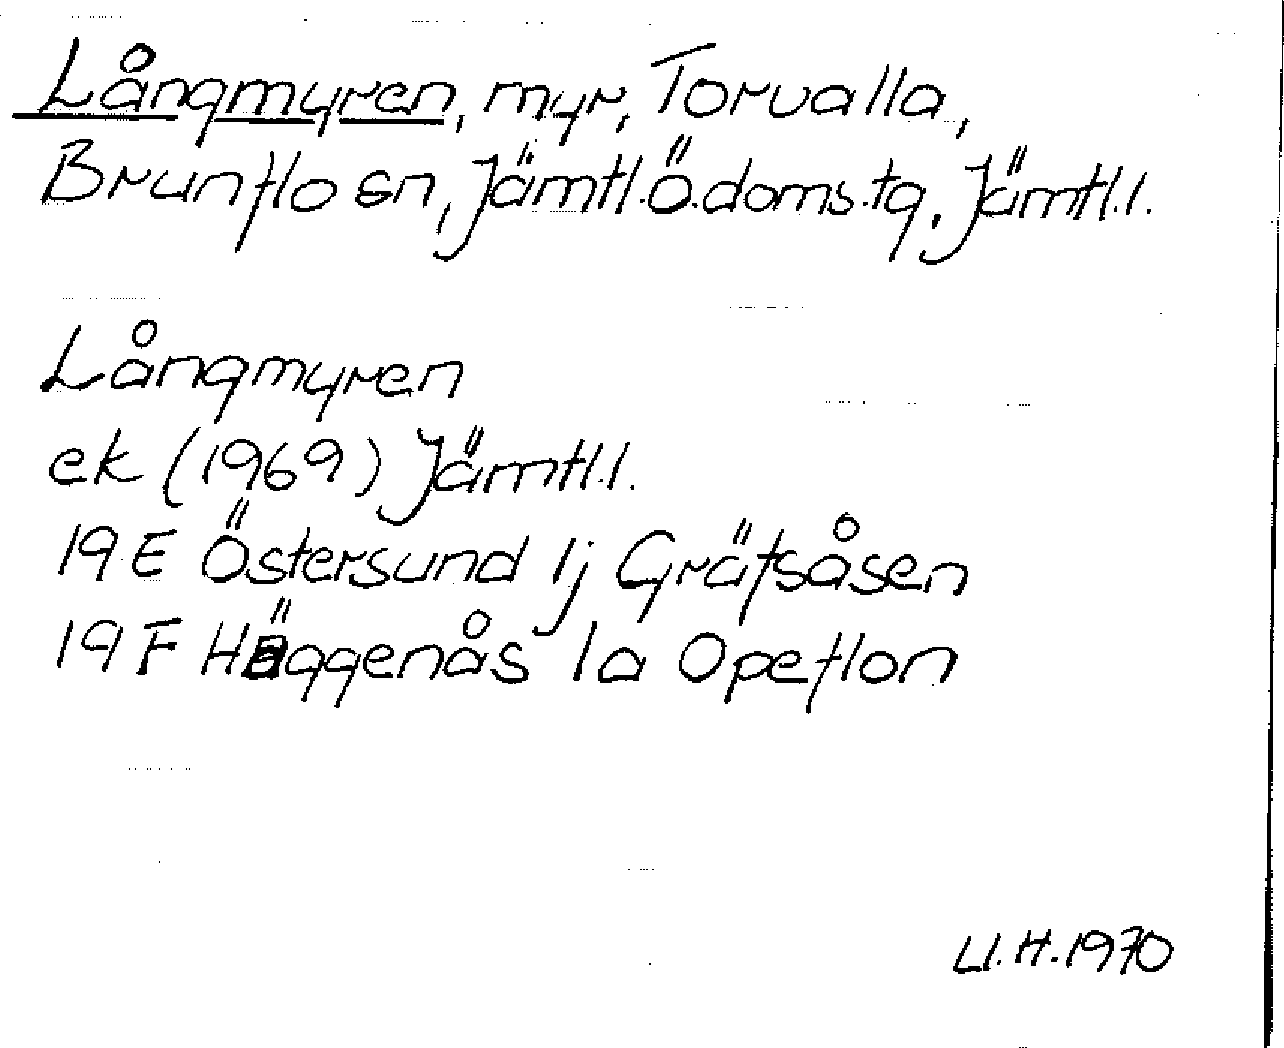 Långmyren, myr, Torvalla,
Brunflo sn, Jämtl.Ö.doms.tg, Jämtl.l.
Långmyren
ek (1969) Jämtl.l.
19 E Östersund 1j Gräfsåsen
19 F Häggenås 1a Opeflon
U.H.1970